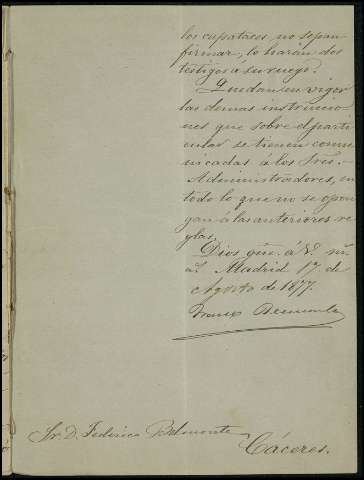 los capataces, no sepan
firmar, lo harán dos
testigos á su ruego.
Quedan en vigor
las demas instruccio-
nes que sobre el parti-
cular se tienen comu-
nicadas á los Sres.
Administradores, en
todo lo que no se opon-
gan á las anteriores re-
glas.
Dios gue. á V. m.
a.s Madrid 17 de
Agosto de 1877.
Belmonte
Sr. D. Federico Belmonte
Cáceres.